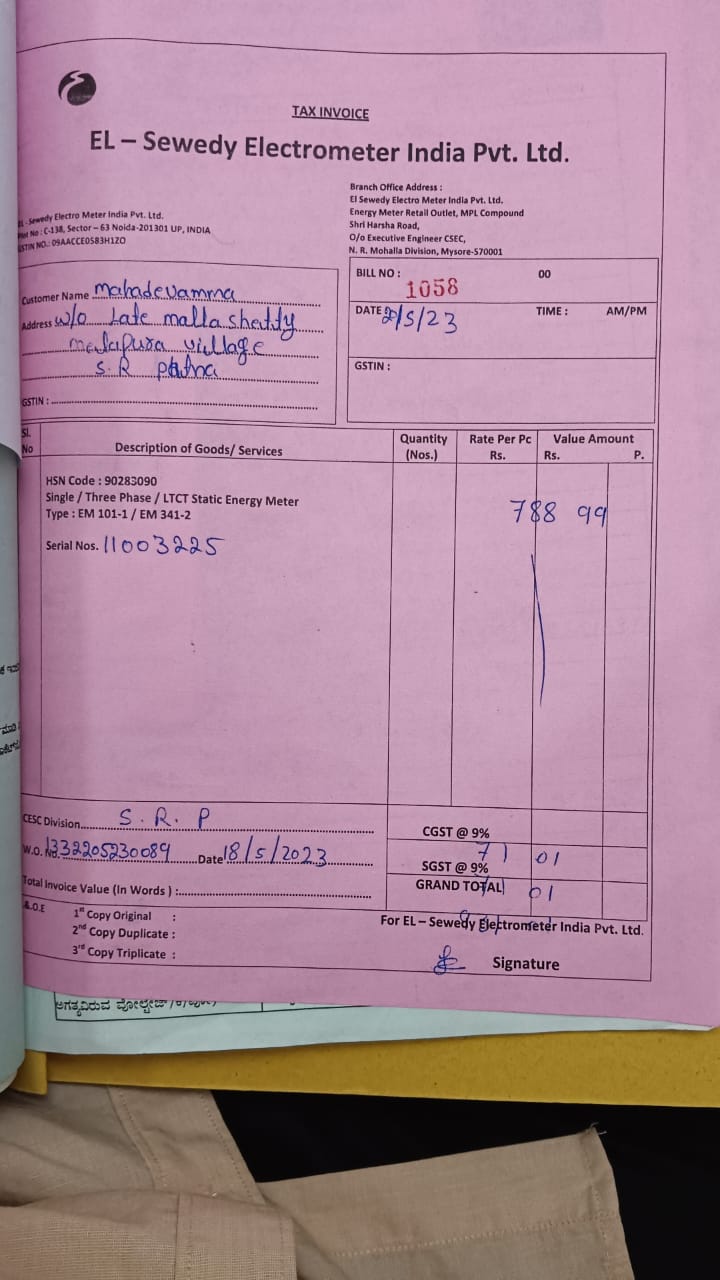 TAX INVOICE
EL – Sewedy Electrometer India Pvt. Ltd.
Branch Office Address :
El Sewedy Electro Meter India Pvt. Ltd.
Energy Meter Retail Outlet, MPL Compound
Shri Harsha Road,
O/o Executive Engineer CSEC,
N. R. Mohalla Division, Mysore-570001
EL - Sewedy Electro Meter India Pvt. Ltd.
Plot No : C-138, Sector – 63 Noida-201301 UP, INDIA
GSTIN NO.: 09AACCE0583H1ZO
Customer Name Mahadevamma
Address W/o Late Malla Shettty
village
S. R
GSTIN :
BILL NO : 1058 00
DATE /5/23 TIME : AM/PM
GSTIN :
Sl. No Description of Goods/ Services Quantity (Nos.) Rate Per Pc Rs. Value Amount Rs. P.
HSN Code : 90283090
Single / Three Phase / LTCT Static Energy Meter
Type : EM 101-1 / EM 341-2
788 99
Serial Nos. 11003225
CESC Division S. R. P
W.O. No. 1332205230089 Date 18/5/2023
CGST @ 9% 71 01
SGST @ 9%
Total Invoice Value (In Words ) :
GRAND TOTAL 01
E.O.E
1st Copy Original :
2nd Copy Duplicate :
3rd Copy Triplicate :
For EL – Sewedy Electrometer India Pvt. Ltd.
Signature
ಅಗತ್ಯವಿರುವ